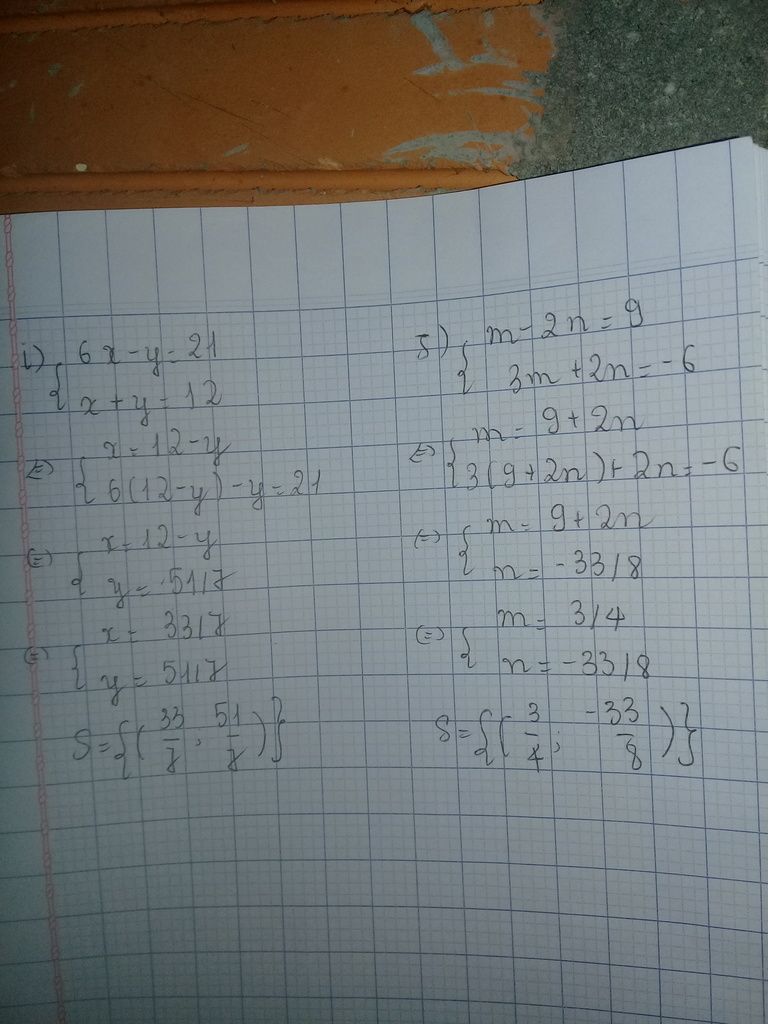 i) { 6x-y=21
x+y=12
(=) { x=12-y
6(12-y)-y=21
(=) { x=12-y
y=51/7
(=) { x=33/7
y=51/7
S={(33/7; 51/7)}
j) { m-2n=9
3m+2n=-6
(=) { m=9+2n
3(9+2n)+2n=-6
(=) { m=9+2n
n=-33/8
(=) { m=3/4
n=-33/8
S={(3/4; -33/8)}